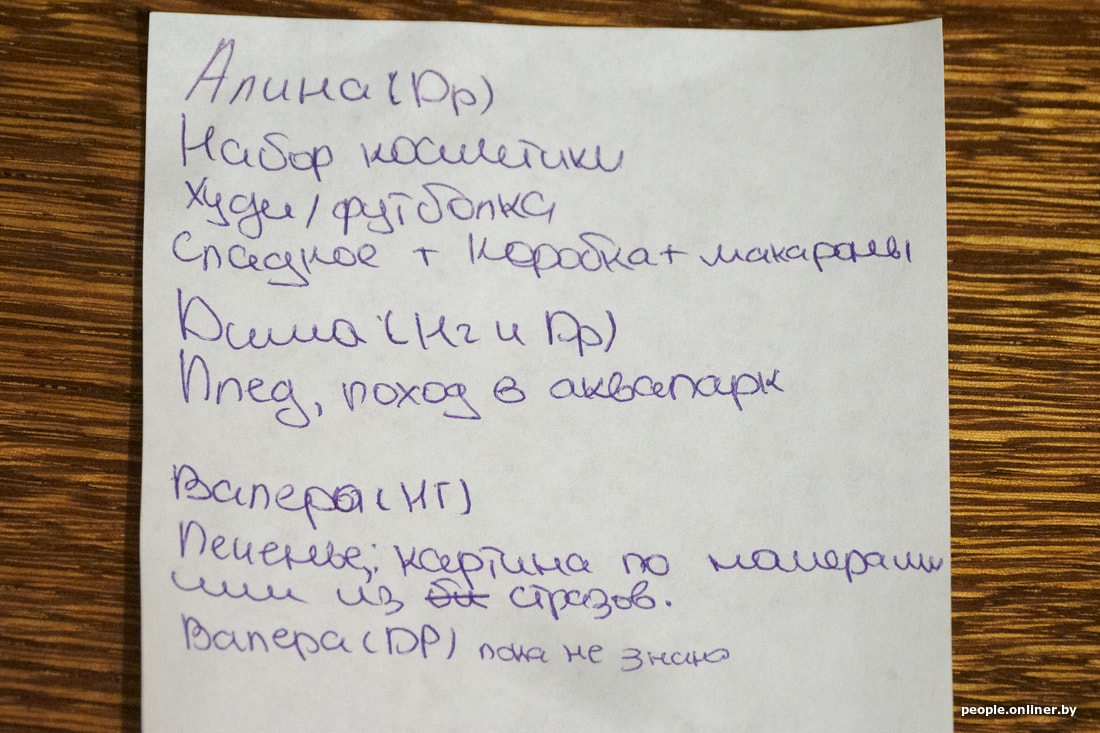 Алина (Др)
Набор косметики
Худи / футболка
Сладкое + Коробка + макароны
Дима (Нг и Др)
Плед, поход в аквапарк
Валера (НГ)
Печенье; картина по номерами
или из стразов.
Валера (ДР) пока не знаю
people.onliner.by